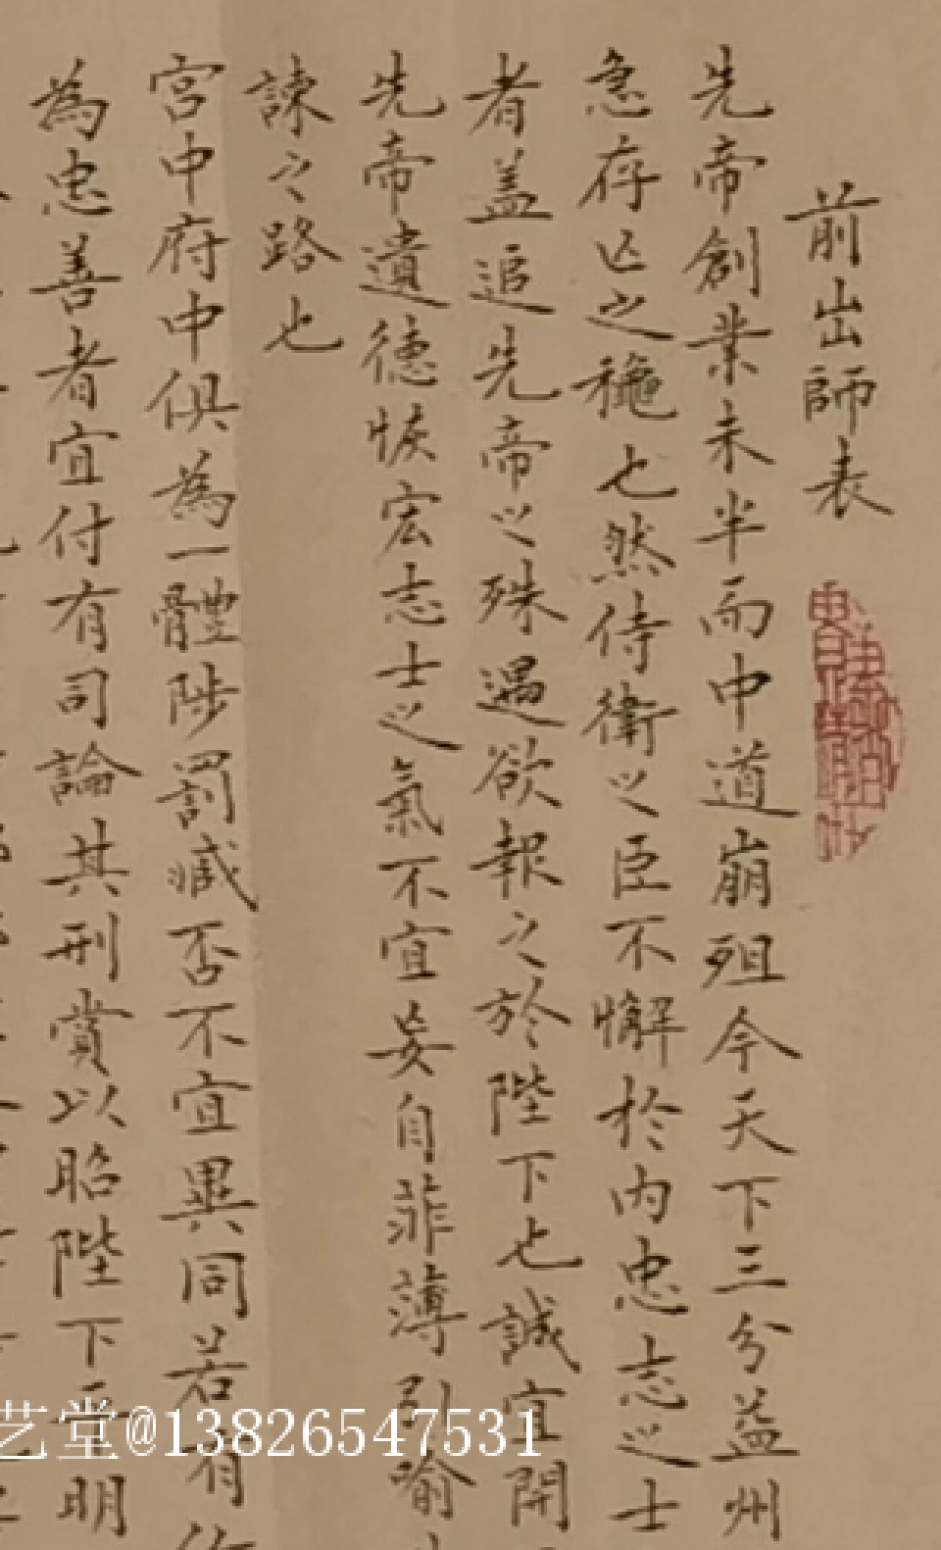 前出師表
先帝創業未半而中道崩殂今天下三分益州
急存亡之穐也然侍衛之臣不懈於内忠志之士
者盖追先帝之殊遇欲報之於陛下也誠宜開
先帝遺德恢宏志士之氣不宜妄自菲薄引喻
諫之路也
宮中府中俱為一體陟罰臧否不宜異同若有
為忠善者宜付有司論其刑賞以昭陛下平明
艺堂@13826547531